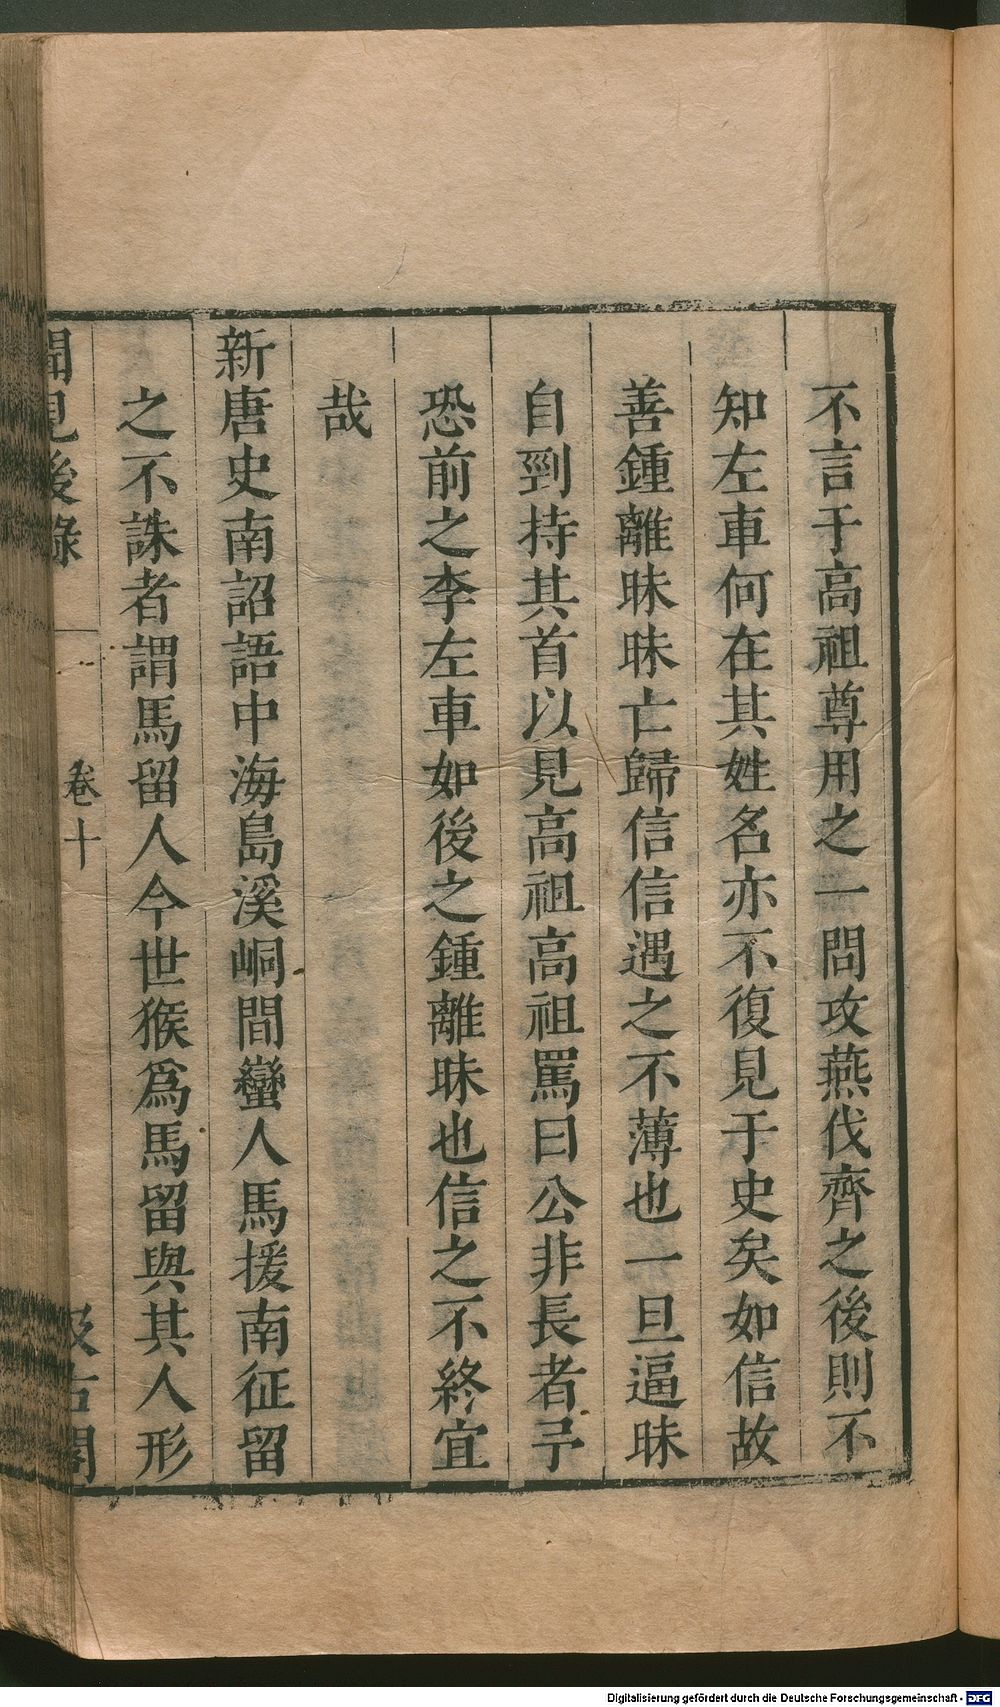 不言于高祖尊用之一問攻燕伐齊之後則不
知左車何在其姓名亦不復見于史矣如信故
善鍾離昧昧亡歸信信遇之不薄也一旦逼昧
自剄持其首以見高祖高祖罵曰公非長者予
恐前之李左車如後之鍾離昧也信之不終宜
哉
新唐史南詔語中海島溪峒間蠻人馬援南征留
之不誅者謂馬留人今世猴爲馬留與其人形
聞見後錄
卷十
汲古閣
Digitalisierung gefördert durch die Deutsche Forschungsgemeinschaft - DFG